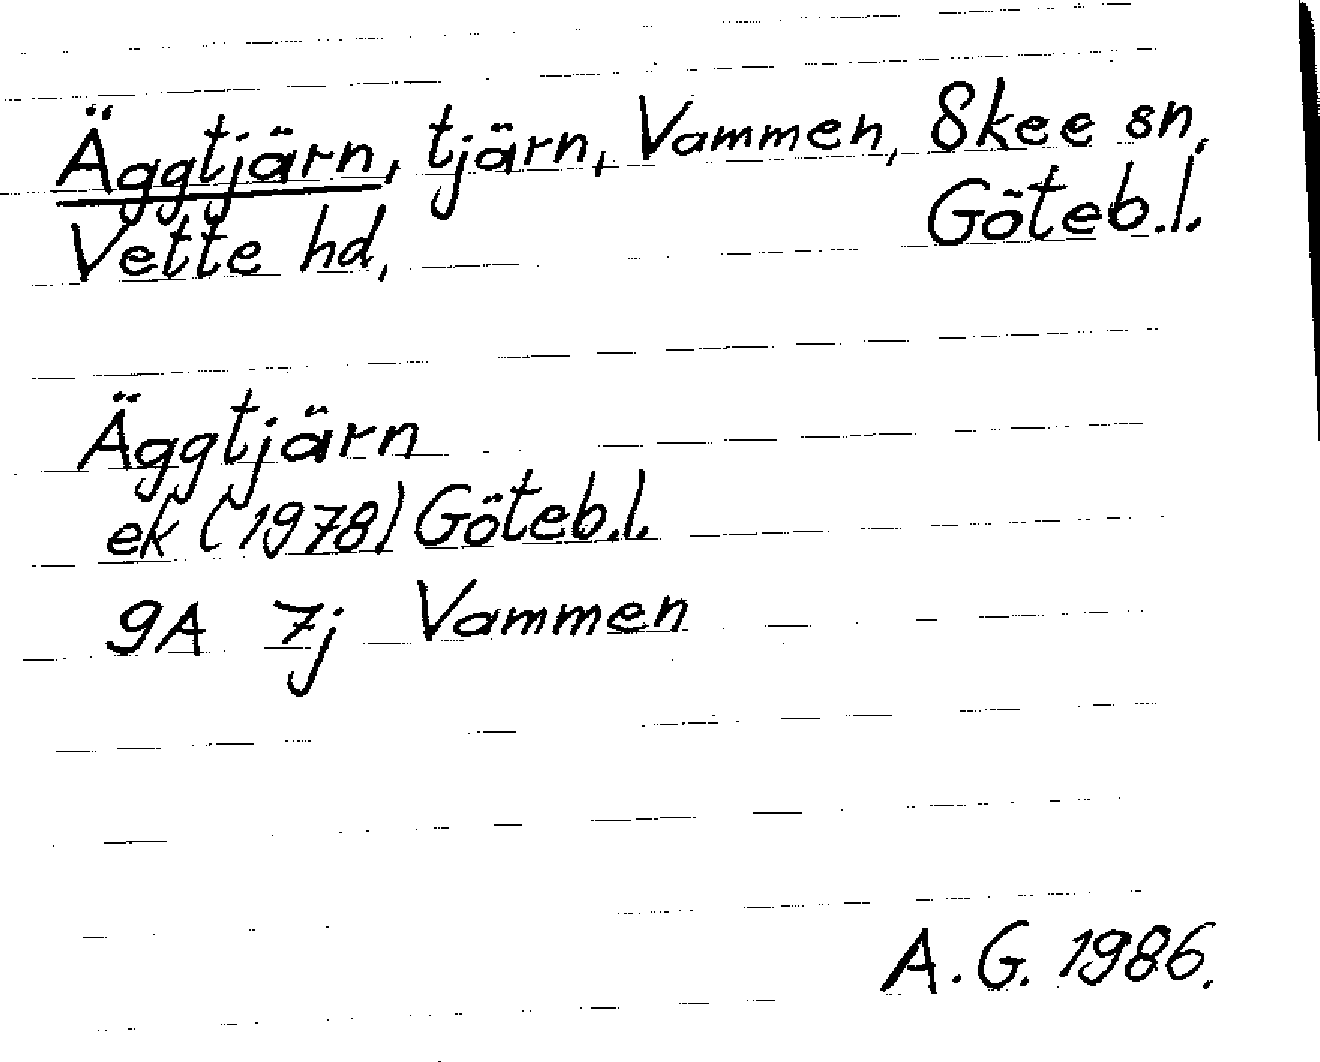 Äggtjärn, tjärn, Vammen, Skee sn,
Vette hd, Göteb.l.
Äggtjärn
ek (1978) Göteb.l.
9A 7j Vammen
A.G. 1986.